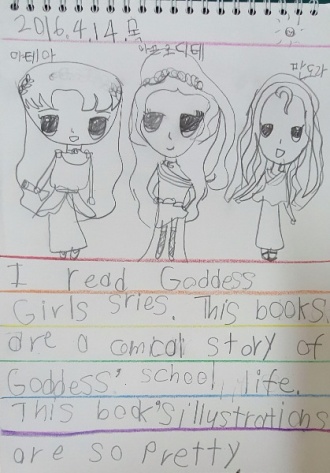 2016.4.14.목
아테아
아프로디테
판도라
I read Goddess
Girls sries. This books.
are a comical story of
Goddess' school, life.
This book's illustrations
are so pretty.